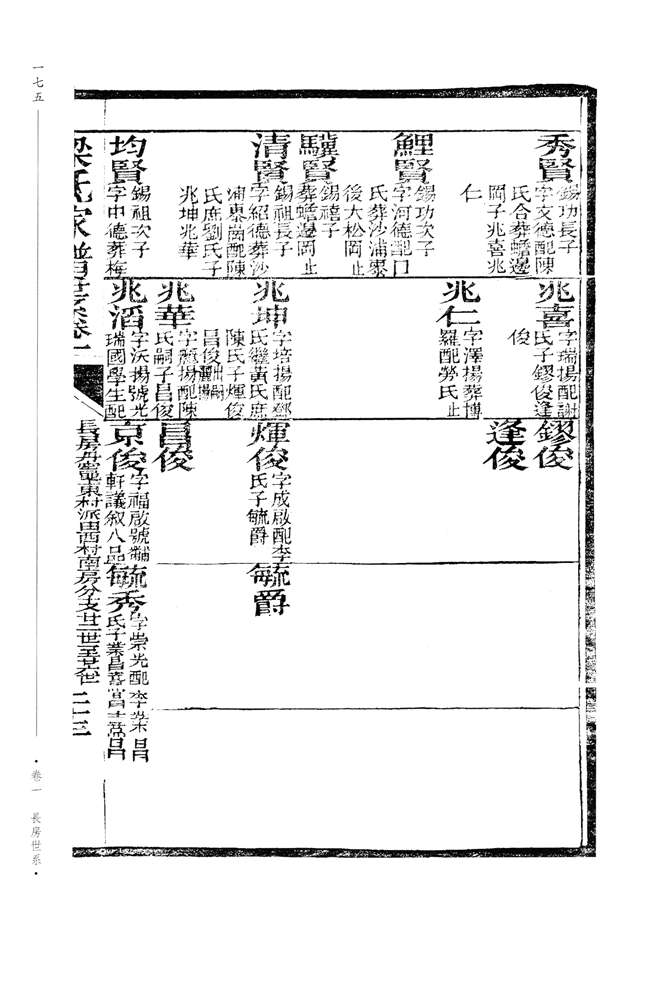 秀賢
錫功長子
字文德配陳
氏合葬蟾邊
岡子兆喜兆
仁
鯉賢
錫功次子
字河德配口
氏葬沙浦寨
後大松岡止
驥賢
錫禧子
葬蟾邊岡止
清賢
錫祖長子
字紹德葬沙
浦東崗配陳
氏庶劉氏子
兆坤兆華
均賢
錫祖次子
字中德葬梅
兆喜
字瑞揚配謝
氏子鏐俊逢
俊
兆仁
字澤揚葬博
羅配勞氏止
兆坤
字培揚配鄧
氏繼黃氏庶
陳氏子煇俊
昌俊出嗣
兆華
揚配陳
氏嗣子昌俊
兆滔
字沃揚號光
瑞國學生配
鏐俊
逢俊
煇俊
字成啟配李
氏子毓爵
昌俊
京俊
字福啟號黼
軒議敘八品
毓爵
毓秀
字崇光配李
氏子業昌喜昌
梁氏家譜世系卷一
長房丹竈東村派居西村南房分支廿一世至廿五世
二十三
一七五
·卷一 長房世系·